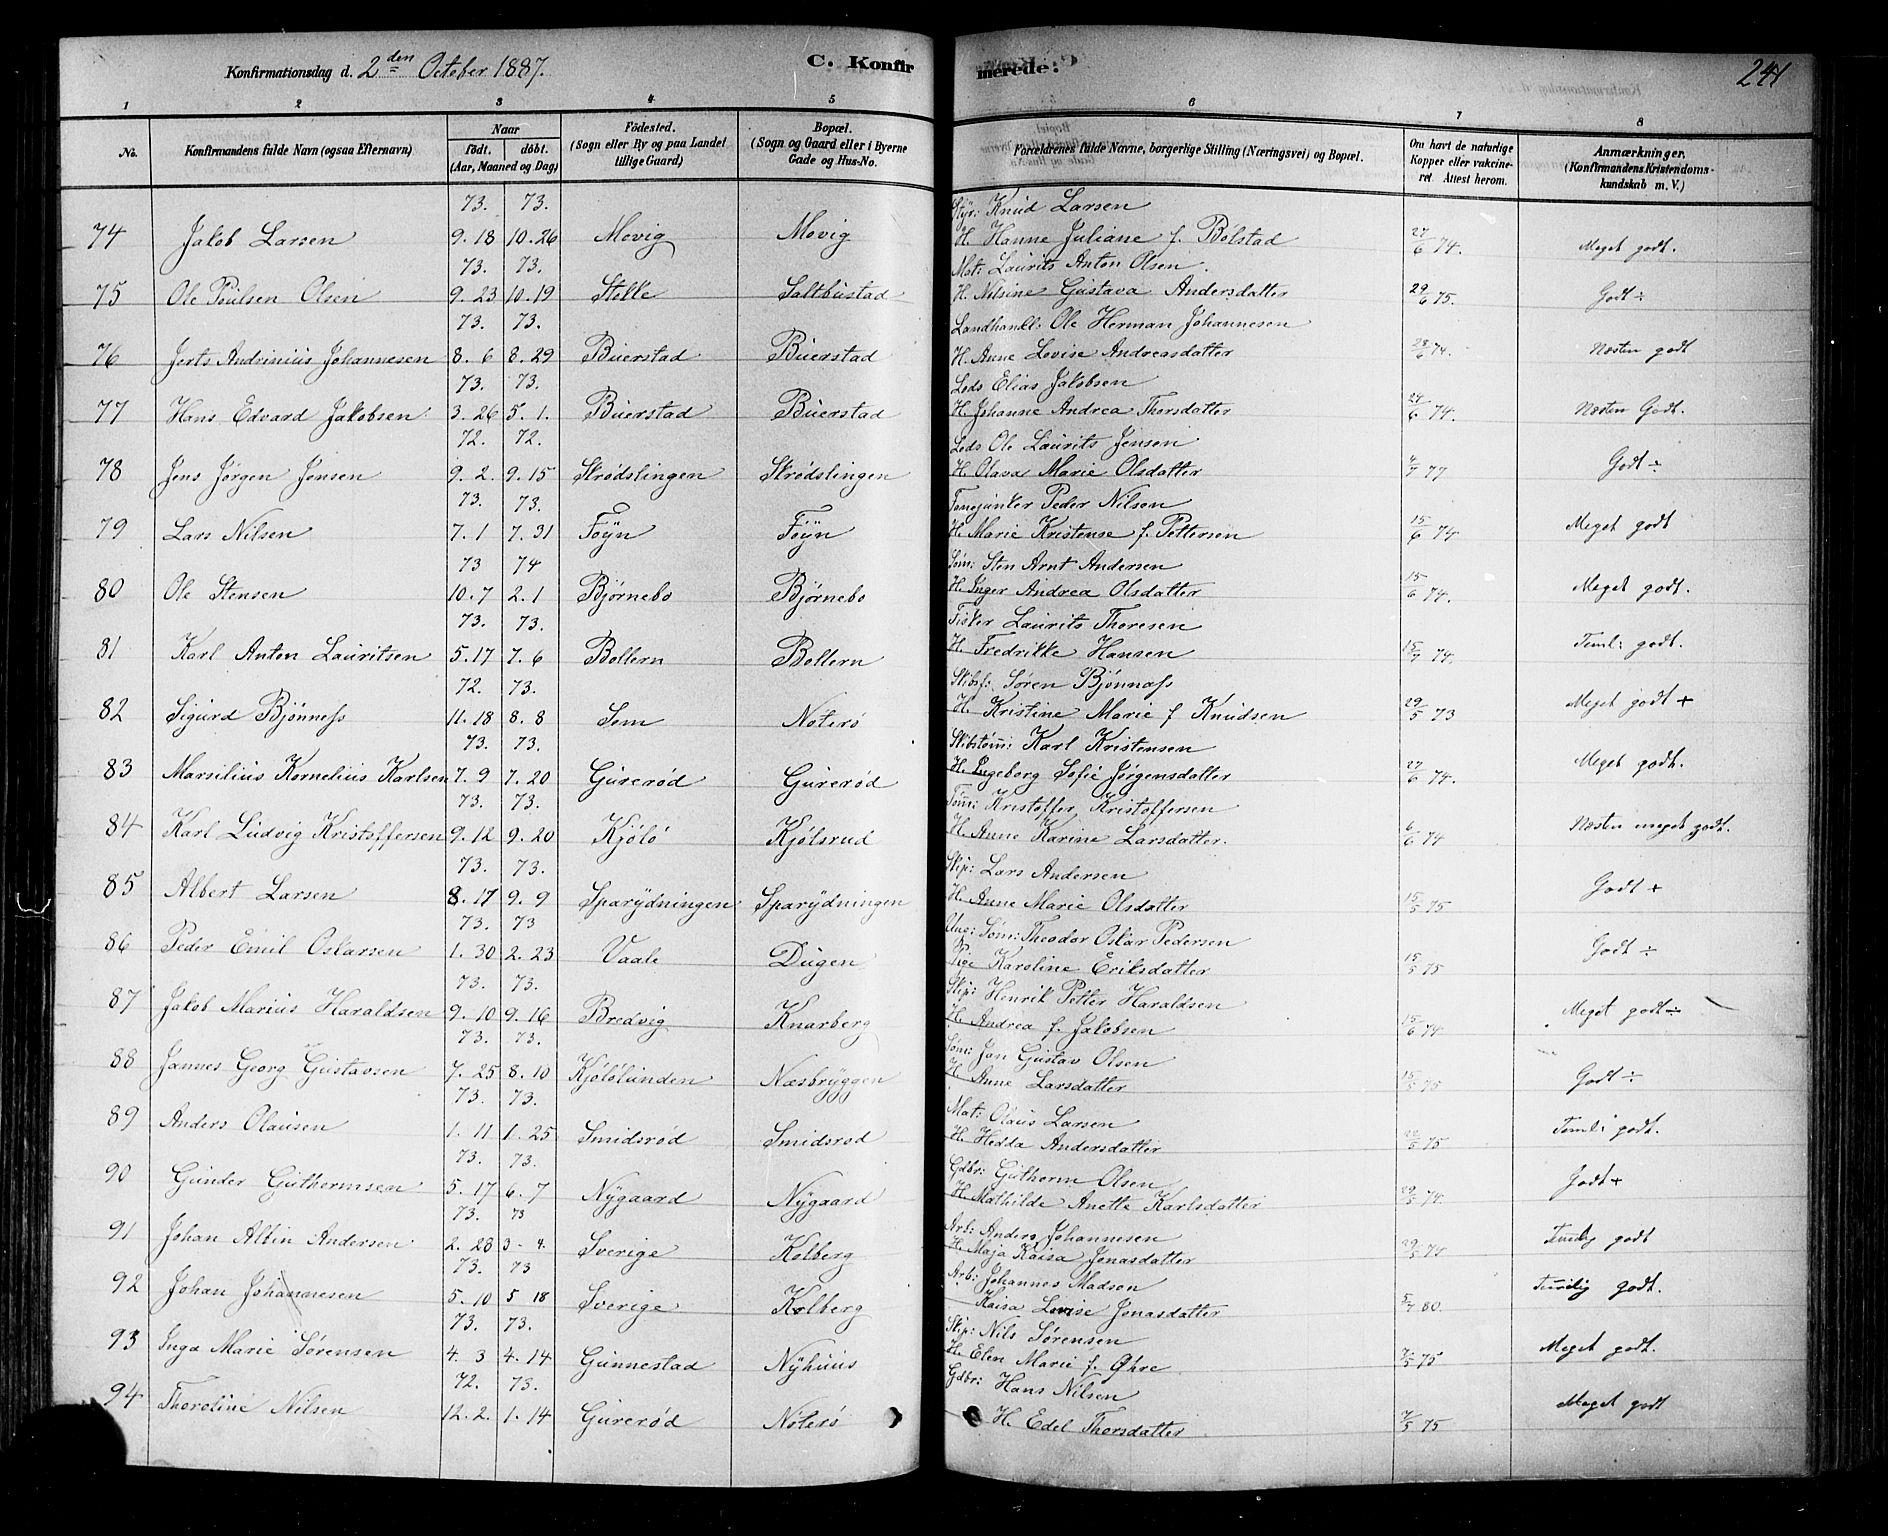 Konfirmationsdag d. 2den October 1887. C. Konfirmerede. 241
1 2 3 4 5 6 7 8
No. Konfirmandens fulde Navn (ogsaa Efternavn) Naar født. døbt. (Aar, Maaned og Dag) Fødested. (Sogn eller By og paa Landet tillige Gaard) Bopæl. (Sogn og Gaard eller i Byerne Gade og Hus-No.) Forældrenes fulde Navne, borgerlige Stilling (Næringsvei) og Bopæl. Om havt de naturlige Kopper eller vakcineret Attest herom. Anmærkninger. (Konfirmandens Kristendomskundskab m. V.)
73. 73. Styr: Knud Larsen
74 Jakob Larsen 9. 18 10. 26 Movig Movig H. Hanne Juliane f. Bolstad 27/6 74. Meget godt.
73. 73. Mat: Laurits Anton Olsen.
75 Ole Poulsen Olsen 9. 23 10. 19 Stokke Saltbustad H. Nilsine Gustava Andersdatter 29/6 75. Godt ÷
73. 73. Landhandl: Ole Herman Johannesen
76 Andrinius Johannesen 8. 6 8. 29 Buerstad Buerstad H. Anne Lovise Andreasdatter 28/6 74. Næsten godt
73. 73. Lods Elias Jakobsen
77 Hans Edvard Jakobsen. 3. 26 5. 1. Buerstad Buerstad H. Johanne Andrea Thorsdatter 24/6 74. Næsten Godt.
72. 72. Lods Ole Laurits Jensen
78 Jens Jørgen Jensen 9. 2. 9. 15 Skrødslingen Skrødslingen H. Olava Marie Olsdatter 77 Godt ÷
73. 73. Fanejunker Peder Nilsen
79 Lars Nilsen 7. 1 7. 31 Føyn Føyn H. Marie Kristense f. Pettersen 15/6 74. Meget godt
73 74 Søm: Sten Arnt Andersen
80 Ole Stensen 10. 7 2. 1 Bjørnebo Bjørnebo H. Inger Andrea Olsdatter 15/6 74. Meget godt.
73. 73. Fisker Laurits Thoresen
81 Karl Anton Lauritsen 5. 17 7. 6 Bollern Bollern H. Fredrikke Hansen 74. Teml: godt.
72. 73. Skibsf: Søren Bjønness
82 Sigurd Bjønness 11. 18 8. 8 Sem Noterø H. Kristine Marie f. Knudsen 29/5 73 Meget godt +
73. 73. Skibstøm: Karl Kristensen
83 Marsilius Kornelius Karlsen 7. 9 7. 20 Gurerød Gurerød H. Ingeborg Sofie Jørgensdatter 27/6 74. Meget godt.
73. 73. Tøm: Kristoffer Kristoffersen
84 Karl Ludvig Kristoffersen 9. 12 9. 20 Kjølø Kjølsrud H. Anne Karine Larsdatter. 6/6 74 Næsten meget godt.
73. 73. Skip: Lars Andersen
85 Albert Larsen 8. 17 9. 9 Sparydningen Sparydningen H. Anne Marie Olsdatter 15/5 75 Godt +
73. 73 Ung: Søm: Theodor Oskar Pedersen
86 Peder Emil Oskarsen 1. 30 2. 23 Vaale Dugen Pige Karoline Eriksdatter 15/5 75 Godt ÷
73. 73. Skip: Henrik Petter Haraldsen
87 Jakob Marius Haraldsen 9. 10 9. 16 Bredvig Knarberg H. Andrea f. Jakobsen 15/6 74. Meget godt ÷
73. 73. Søm: Jan Gustav Olsen
88 Jannes Georg Gustavsen 7. 25 8. 10 Kjølølunden Næsbryggen H. Anne Larsdatter 15/5 75 Godt ÷
73. 73. Mat: Olaus Larsen
89 Anders Olausen 1. 11 1. 25 Smidsrød Smidsrød H. Hedda Andersdatter 22/5 75 Teml: godt.
73. 73. Gdbr: Gutherm Olsen
90 Gunder Guthermsen 5. 17 6. 7 Nygaard Nygaard H. Mathilde Anette Karlsdatter 29/5 74. Godt +
73. 73 Arb: Anders Johannesen
91 Johan Albin Andersen 2. 28 3 - 4. Sverige Kolberg H. Maja Kaisa Jonasdatter 29/5 74 Temlig godt
73. 73 Arb: Johannes Madsen
92 Johan Johannesen 5. 10 5 18 Sverige Kolberg Kaisa Lovise Jonasdatter 5/7 80. Temlig godt.
73. 73. Skip: Nils Sørensen
93 Inga Marie Sørensen 4. 3 4. 14 Gunnestad Nyhuus H. Elen Marie f. Øhre 7/5 75 Meget godt.
72. 73. Gdbr: Hans Nilsen
94 Thoroline Nilsen 12. 2. 1. 14 Gurerød Nøterø H. Edel Thorsdatter 7/5 75 Meget godt